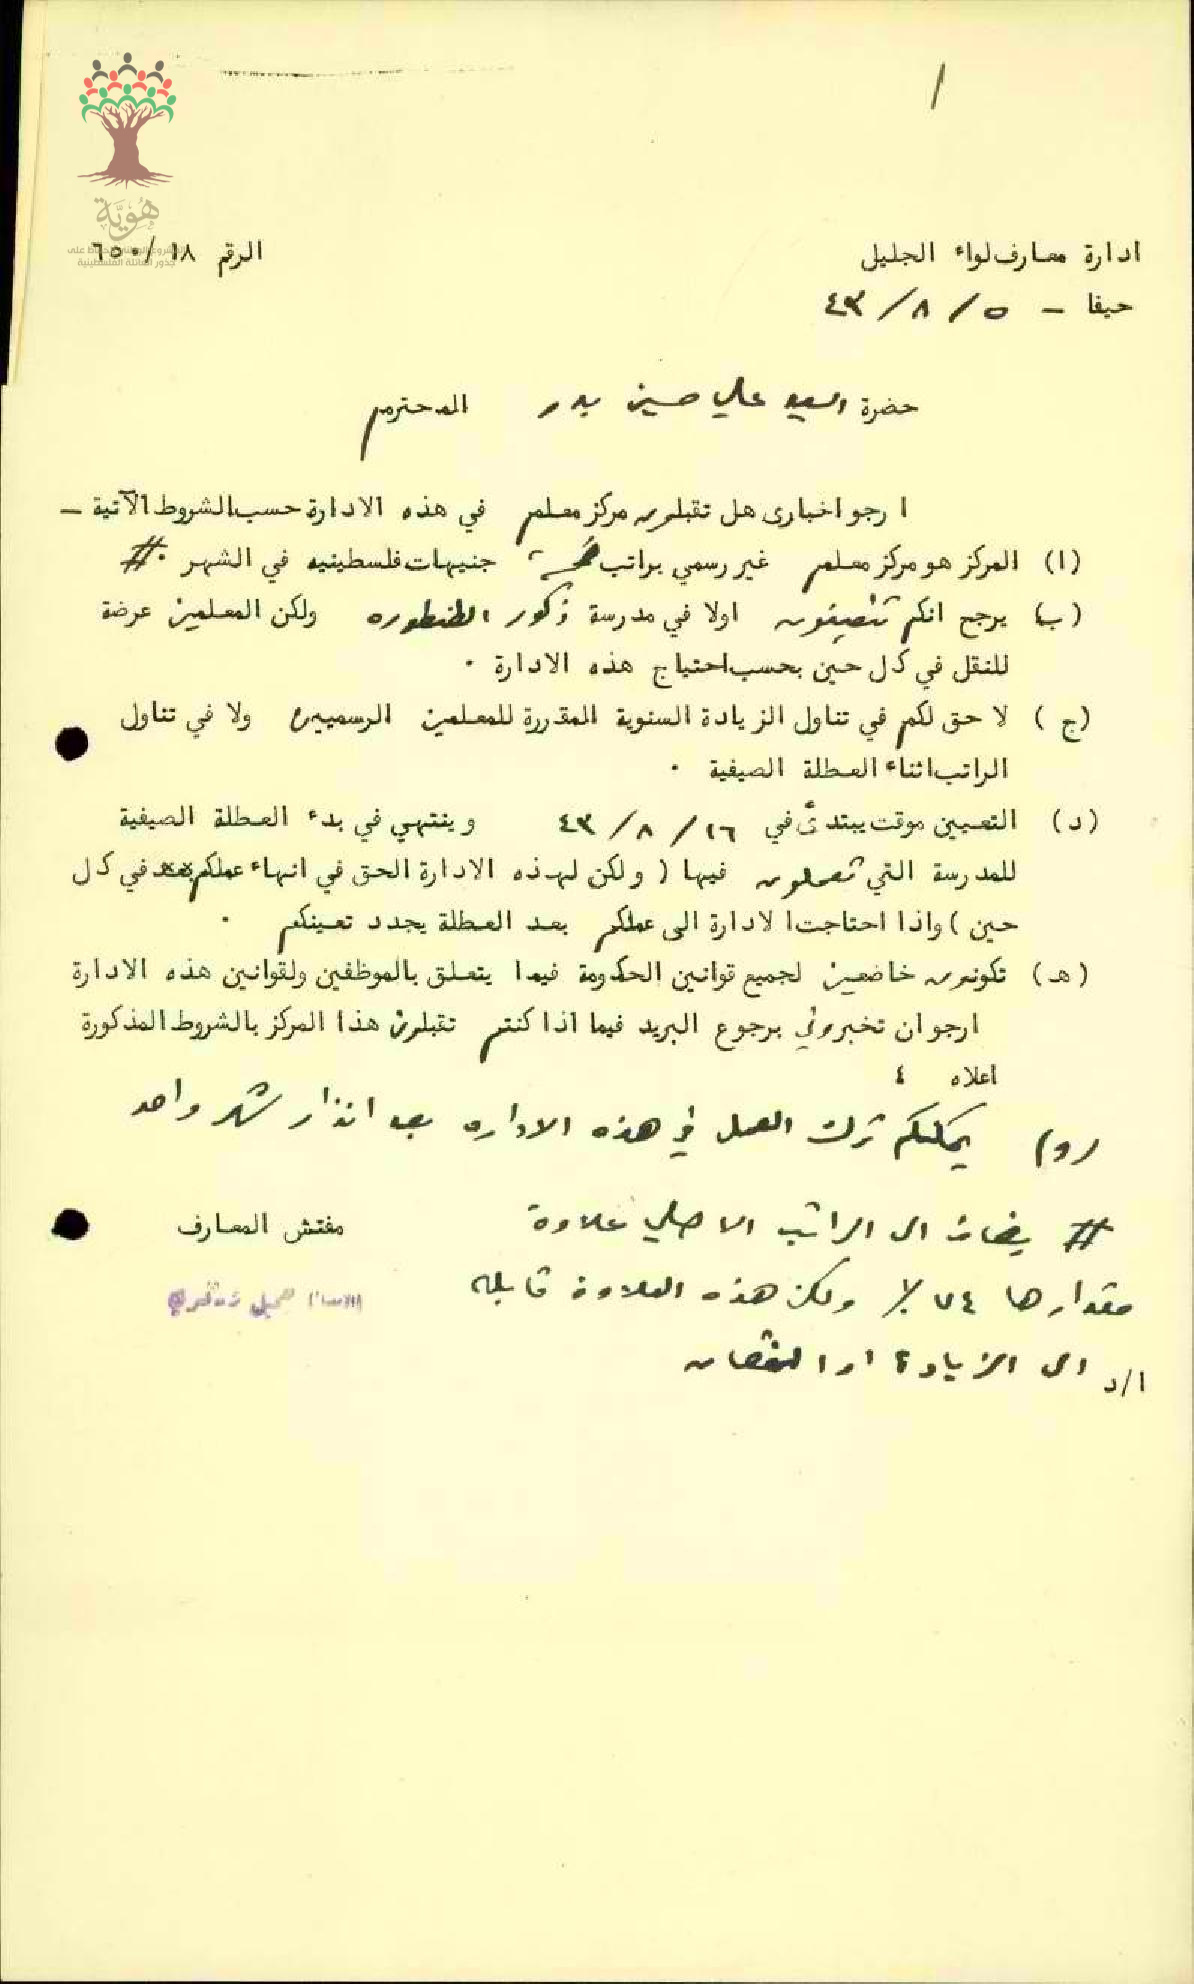 ١
هُوِيَّة
المشروع الوطني للحفاظ على
جذور العائلة الفلسطينية
ادارة معارف لواء الجليل
الرقم ٦٥٠/١٨
حيفا - ٥ / ٨ / ٤٣
حضرة السيد علي حسين بدر المحترم
ارجو اخبارى هل تقبلون مركز معلم في هذه الادارة حسب الشروط الآتية -
(ا) المركز هو مركز معلم غير رسمي براتب جنيهات فلسطينيه في الشهر . #
(ب) يرجح انكم تضيفون اولا في مدرسة ذكور الطنطوره ولكن المعلمين عرضة
للنقل في كل حين بحسب احتياج هذه الادارة .
(ج) لا حق لكم في تناول الزيادة السنوية المقدرة للمعلمين الرسميين ولا في تناول
الراتب اثناء العطلة الصيفية .
(د) التعيين موقت يبتدئ في ١٦ / ٨ / ٤٣ وينتهي في بدء العطلة الصيفية
للمدرسة التي تعملون فيها ( ولكن لهذه الادارة الحق في انهاء عملكم في كل
حين ) واذا احتاجت الادارة الى عملكم بعد العطلة يجدد تعيينكم .
(هـ) تكونون خاضعين لجميع قوانين الحكومة فيما يتعلق بالموظفين ولقوانين هذه الادارة
ارجو ان تخبروني برجوع البريد فيما اذا كنتم تقبلون هذا المركز بالشروط المذكورة
اعلاه ٤
(و) يمكنكم ترك العمل في هذه الاداره بعد انذار شهر واحد
# يضاف الى الراتب الاصلي علاوة
مقدارها ٧٤ ٪ ولكن هذه العلاوة قابله
الى الزيادة او النقصان
مفتش المعارف
جميل
ا/د